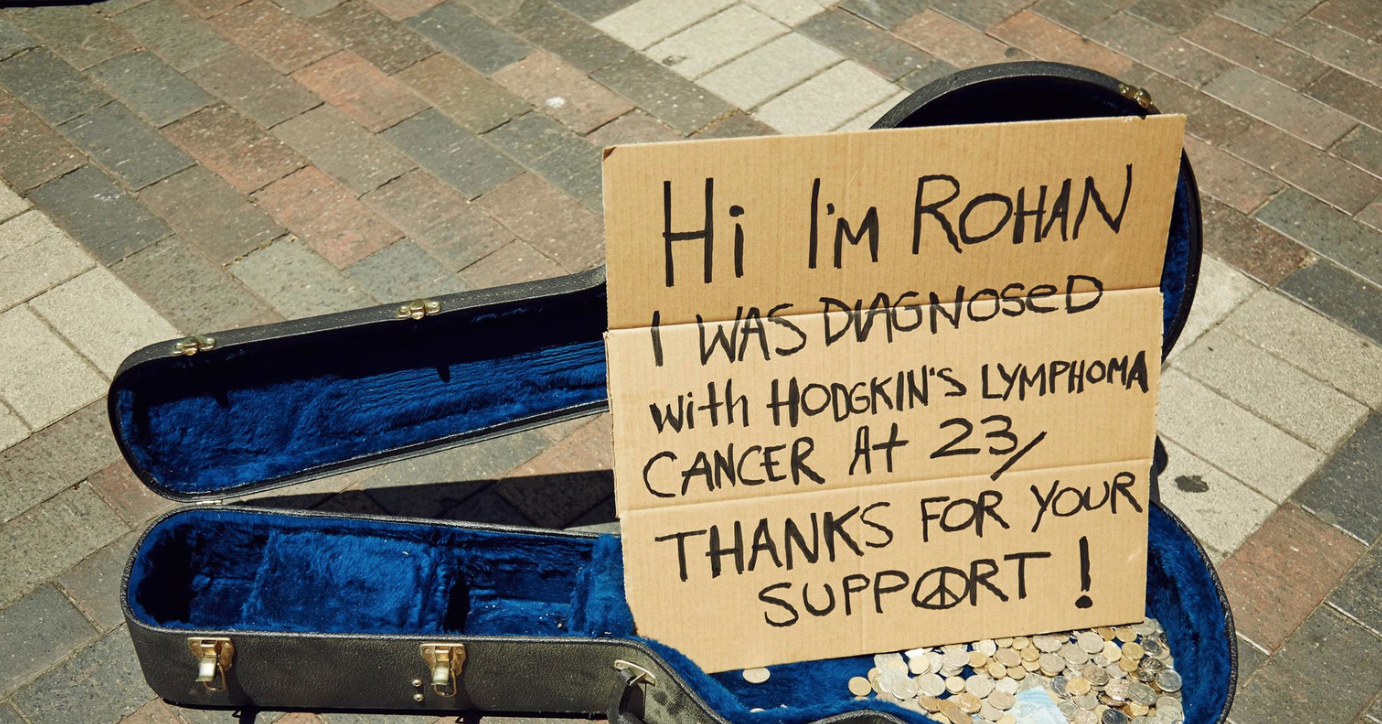 Hi I'm ROHAN
I WAS DIAGNOSeD
with HODGKIN'S LYMPHOMA
CANCER At 23,
THANKS FOR YOUR
SUPPORT !